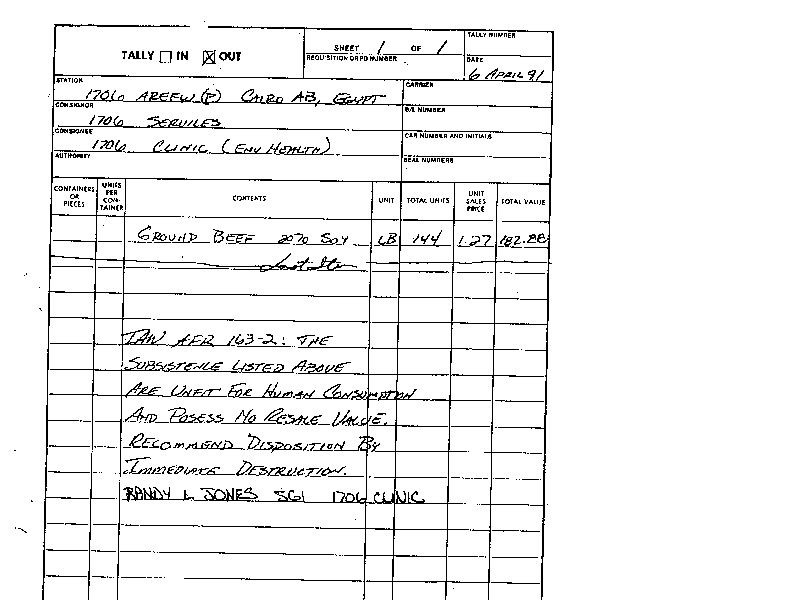 TALLY NUMBER
TALLY IN OUT
SHEET 1 OF 1
REQUISITION OR PD NUMBER
DATE
6 APRIL 91
STATION
1706 AREFW (P) CAIRO AB, EGYPT
CARRIER
CONSIGNOR
1706 SERVICES
B/L NUMBER
CONSIGNEE
1706 CLINIC (ENV HEALTH)
CAR NUMBER AND INITIALS
AUTHORITY
SEAL NUMBERS
CONTAINERS OR PIECES
UNITS PER CON-TAINER
CONTENTS
UNIT
TOTAL UNITS
UNIT SALES PRICE
TOTAL VALUE
GROUND BEEF 20% SOY LB 144 1.27 182.88
Last Item
IAW AFR 163-2: THE
SUBSISTENCE LISTED ABOVE
ARE UNFIT FOR HUMAN CONSUMPTION
AND POSESS NO RESALE VALUE.
RECOMMEND DISPOSITION BY
IMMEDIATE DESTRUCTION.
RANDY L JONES SGT 1706 CLINIC